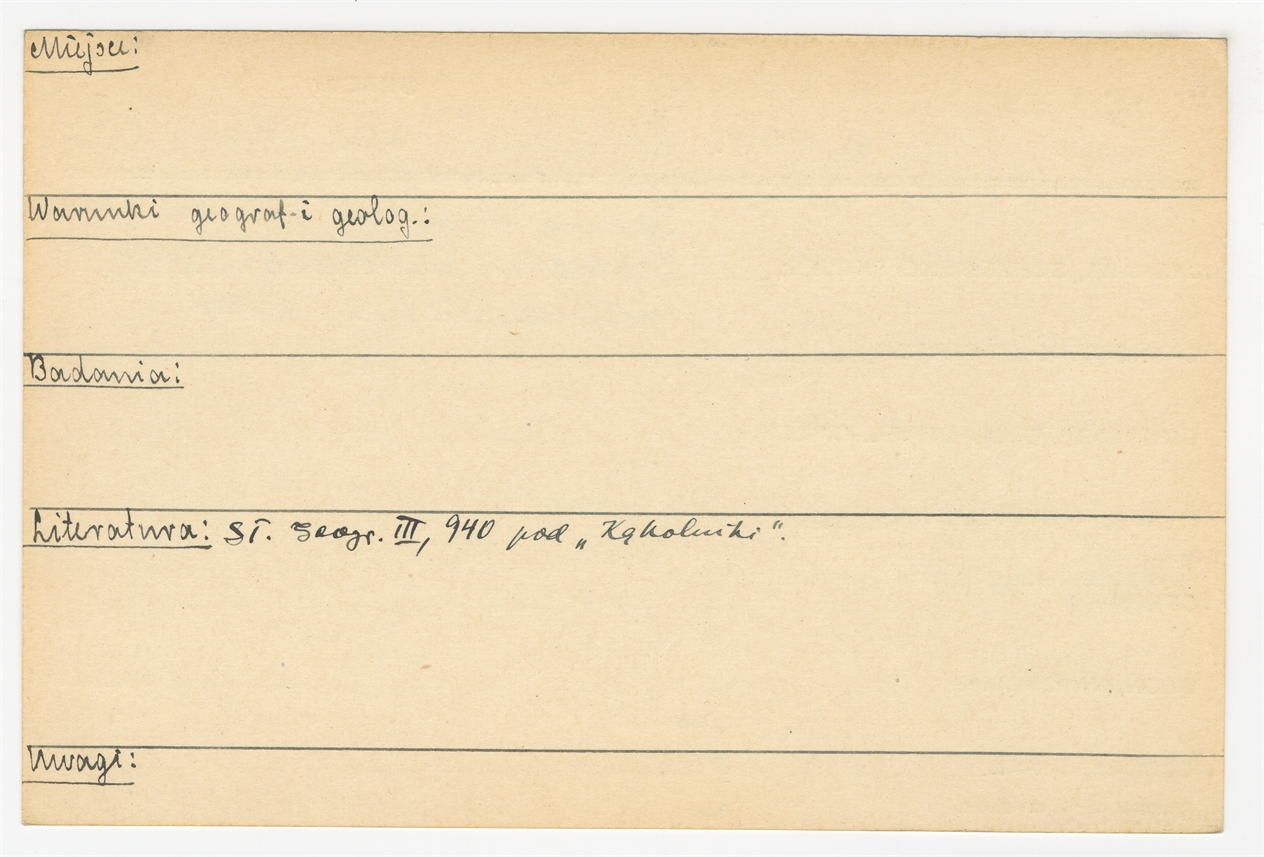 Miejsce:
Warunki geograf-i geolog.:
Badania:
Literatura: Sł. Geogr. III, 940 pod „Kąkolniki".
Uwagi: